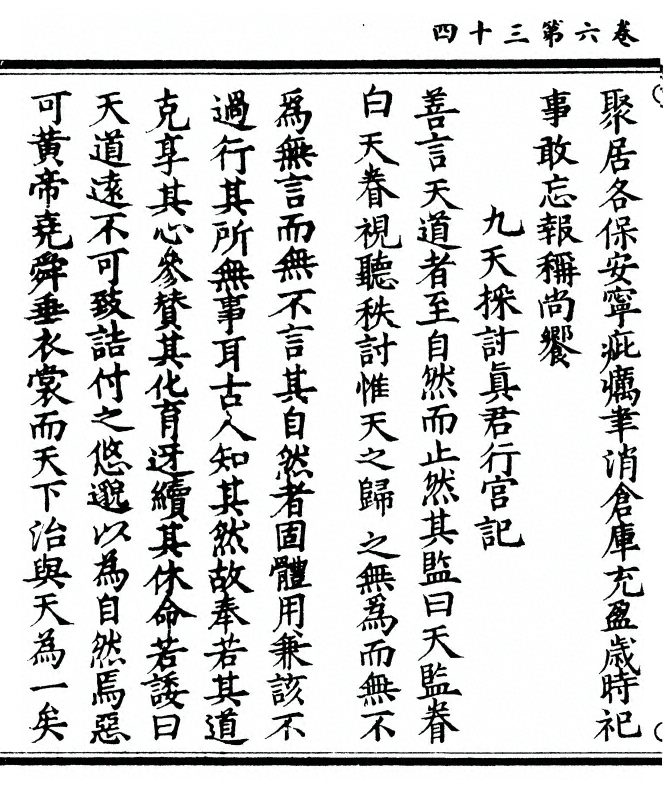 卷六第三十四
聚居各保安寧疵癘聿消倉庫充盈歲時祀
事敢忘報稱尚饗
九天探討眞君行宮記
善言天道者至自然而止然其監曰天監眷
白天眷視聽秩討惟天之歸 之無爲而無不
爲無言而無不言其自然者固體用兼該不
過行其所無事耳古人知其然故奉若其道
克享其心參贊其化育迓續其休命若諉曰
天道遠不可致詰付之悠邈以為自然焉惡
可黃帝堯舜垂衣裳而天下治與天為一矣